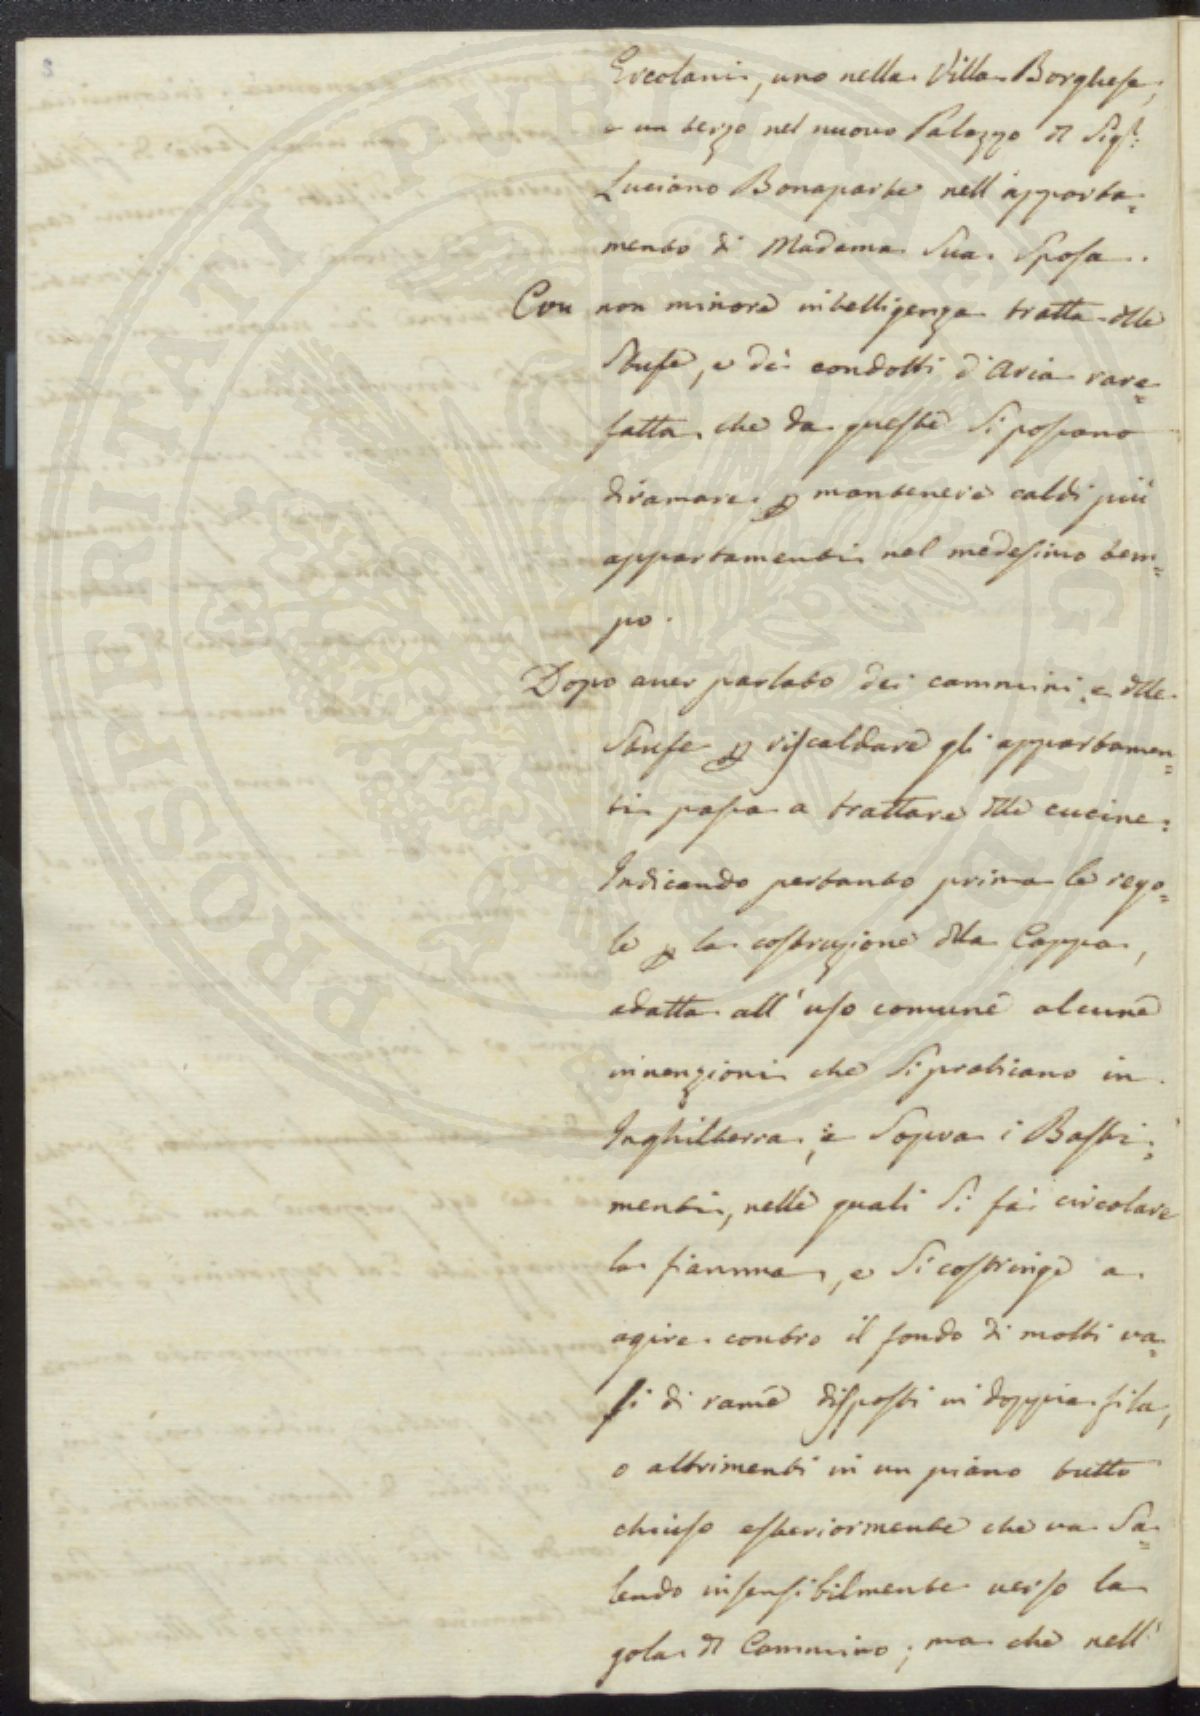 Ercolani, uno nella Villa Borghese,
e un terzo nel nuovo Palazzo dl Sigr:
Luciano Bonaparte nell'apparta=
mento di Madama Sua Sposa.
Con non minore intelligenza tratta dlle
Stufe, e dei condotti d'Aria rare=
fatta che da queste si possano
diramare p mantenere caldi più
appartamenti nel medesimo tem=
po.
Dopo aver parlato dei cammini e dlle
Stufe p riscaldare gli appartamen=
ti passa a trattare dlle cucine:
Indicando pertanto prima le rego=
le p la costruzione dlla Cappa,
adatta all'uso comune alcune
invenzioni che si praticano in
Inghilterra, e sopra i Basti=
menti, nelle quali si fa circolare
la fiamma, e si costringe a
agire contro il fondo di molti va=
si di rame disposti in doppia fila,
o altrimenti in un piano tutto
chiuso esteriormente che va sa=
lendo insensibilmente verso la
gola dl Cammino; ma che nell'
PROSPERITATI PUBLICAE